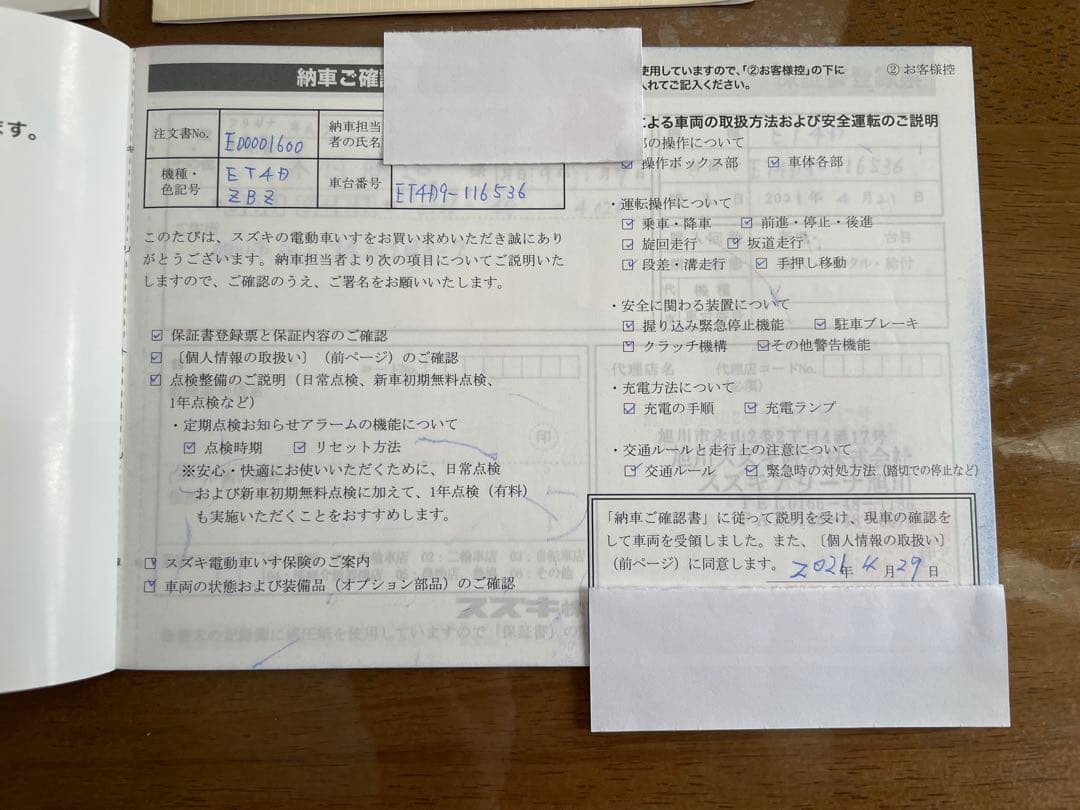 ます。
納車ご確認
使用していますので、「②お客様控」の下に
入れてご記入ください。
② お客様控
注文書No.
ED0001600
納車担当
者の氏名
機種・
色記号
ET4D
ZBZ
車台番号
ET4D9-116536
このたびは、スズキの電動車いすをお買い求めいただき誠にあり
がとうございます。納車担当者より次の項目についてご説明いた
しますので、ご確認のうえ、ご署名をお願いいたします。
☑ 保証書登録票と保証内容のご確認
☑ 〔個人情報の取扱い〕（前ページ）のご確認
☑ 点検整備のご説明（日常点検、新車初期無料点検、
1年点検など）
・定期点検お知らせアラームの機能について
☑ 点検時期 ☑ リセット方法
※安心・快適にお使いいただくために、日常点検
および新車初期無料点検に加えて、1年点検（有料）
も実施いただくことをおすすめします。
☑ スズキ電動車いす保険のご案内
☑ 車両の状態および装備品（オプション部品）のご確認
による車両の取扱方法および安全運転のご説明
部の操作について
☑ 操作ボックス部 ☑ 車体各部
・運転操作について
☑ 乗車・降車 ☑ 前進・停止・後進
☑ 旋回走行 ☑ 坂道走行
☑ 段差・溝走行 ☑ 手押し移動
・安全に関わる装置について
☑ 握り込み緊急停止機能 ☑ 駐車ブレーキ
☑ クラッチ機構 ☑ その他警告機能
・充電方法について
☑ 充電の手順 ☑ 充電ランプ
・交通ルールと走行上の注意について
☑ 交通ルール ☑ 緊急時の対処方法（踏切での停止など）
「納車ご確認書」に従って説明を受け、現車の確認を
して車両を受領しました。また、〔個人情報の取扱い〕
（前ページ）に同意します。
2021年 4月29日